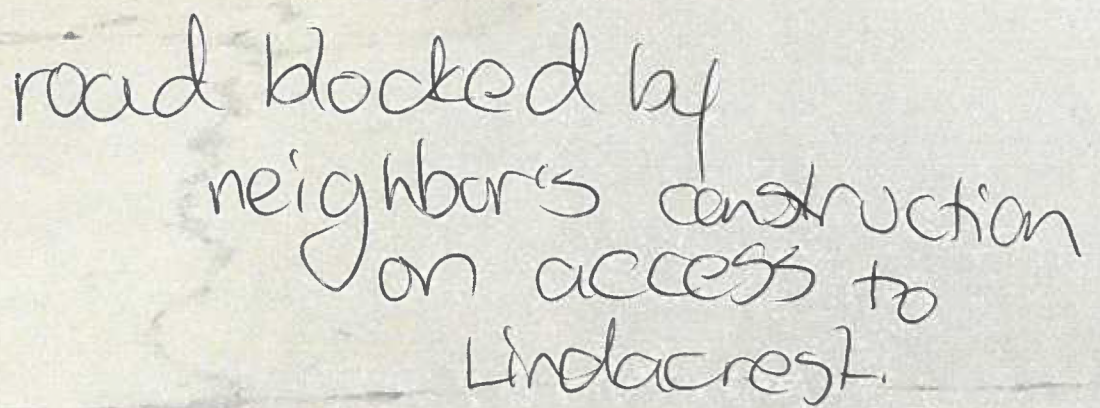 road blocked by
neighbor's construction
on access to
Lindacrest.